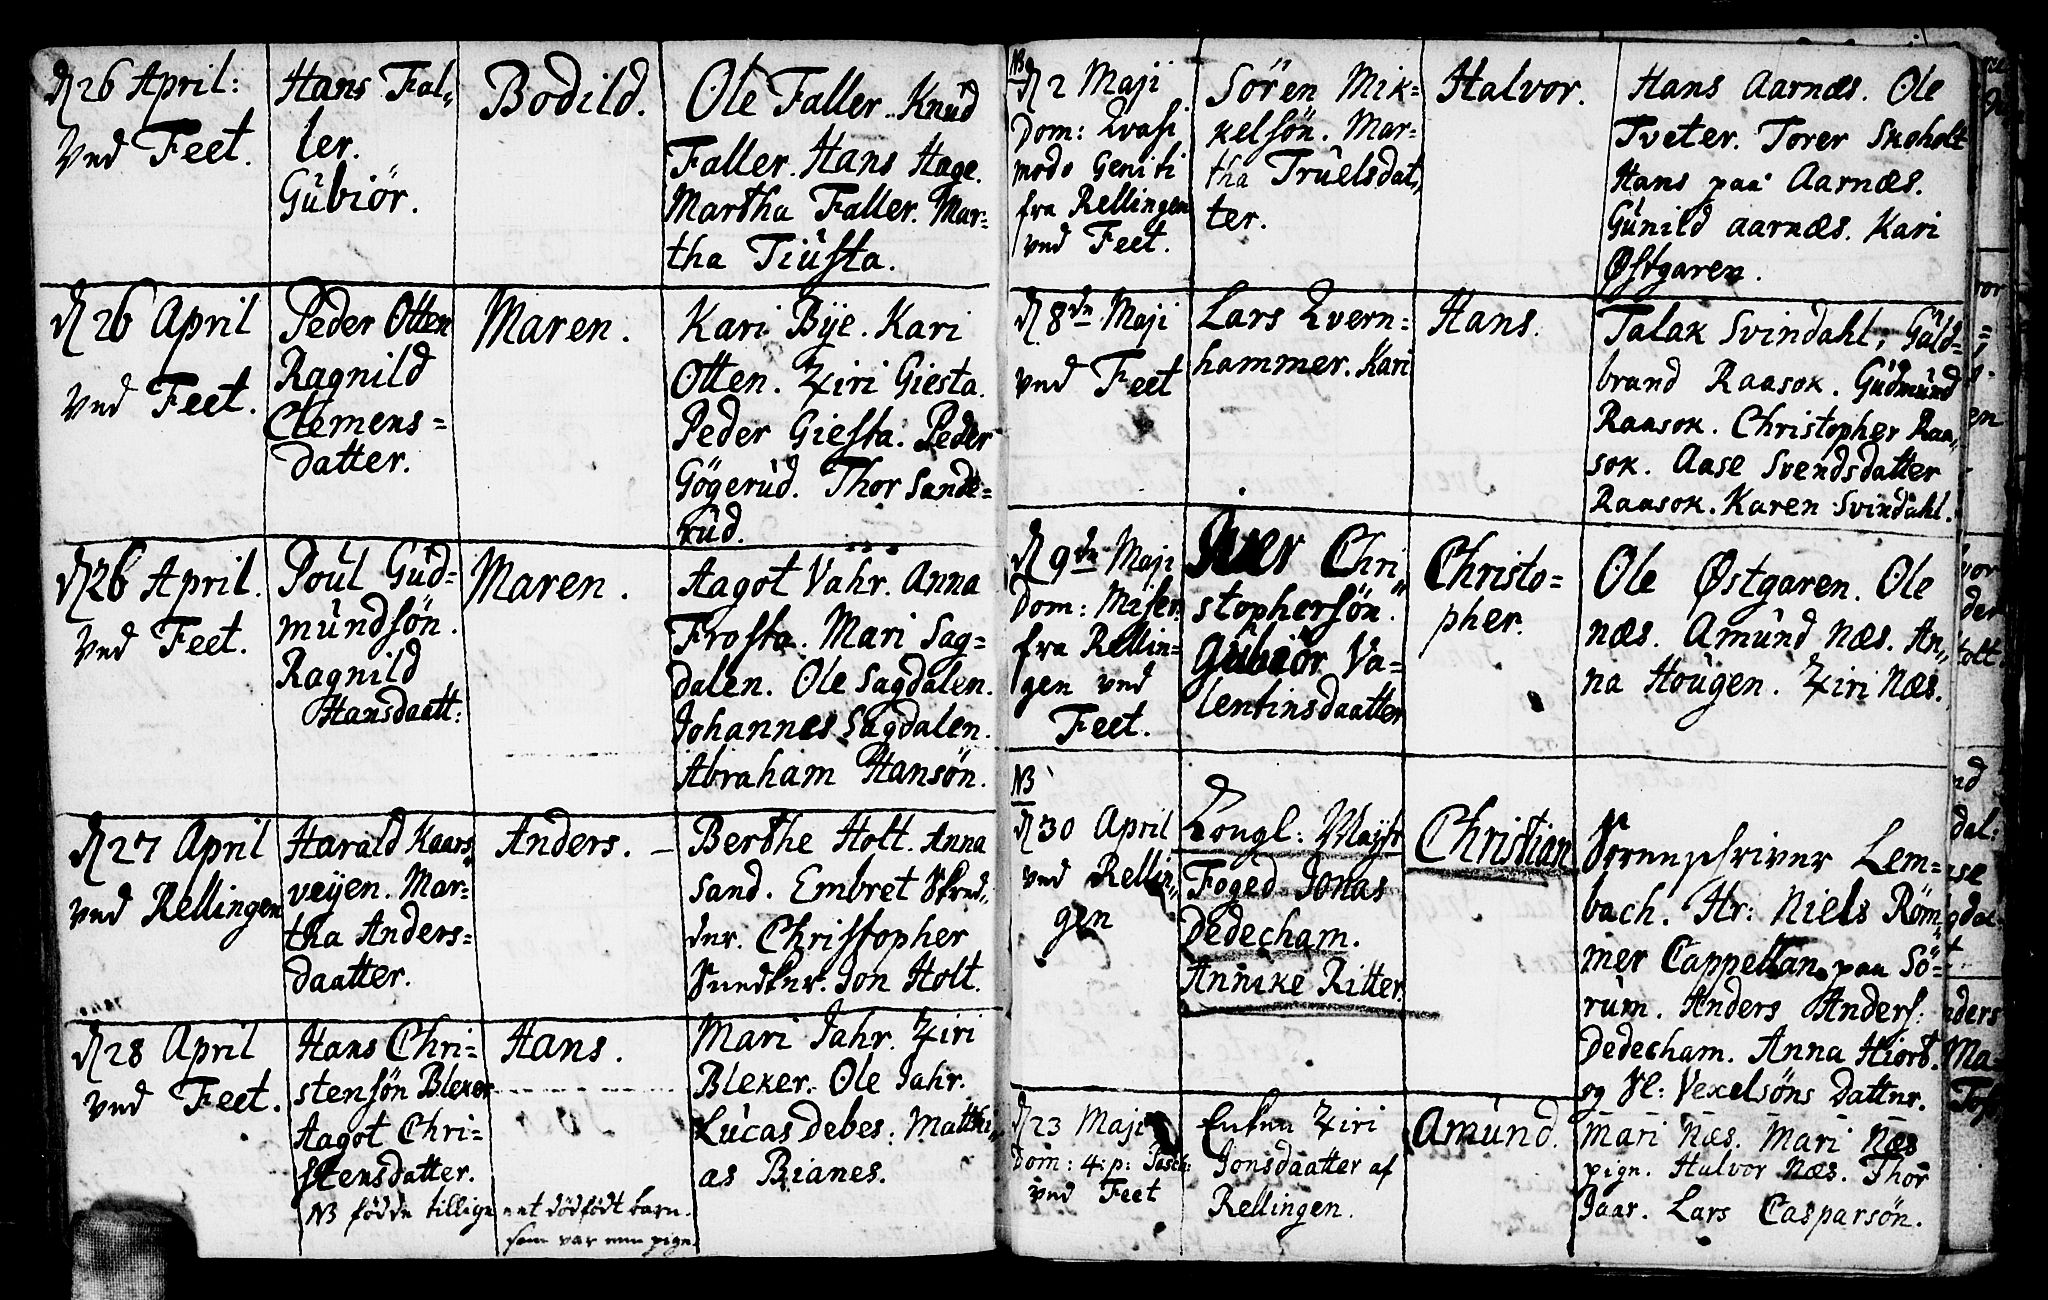 d 26 April:
ved Feet.
Hans Fal„
ler.
Gübiör.
Bodild.
Ole Faller. Knud
Faller. Hans Hage.
Martha Faller. Mar=
tha Tiüsta.
d 26 April
ved Feet.
Peder Otten
Ragnild
Clemens=
datter.
Maren.
Kari Bÿe. Kari
Otten. Ziri Giesta.
Peder Giesta. Peder
Gögerüd. Thor Sande=
rüd.
d 26 April.
ved Feet.
Poül Güd=
mündsön.
Ragnild
Hansdaatt:
Maren.
Aagot Vahr. Anna
Frosta. Mari Sag=
dalen. Ole Sagdalen.
Johannes Sagdalen.
Abraham Hansön.
d 27 April
ved Rellingen
Harald Kaars„
veÿen. Mar=
tha Anders=
daatter.
Anders.
Berthe Holt. Anna
Sand. Embret Skred„
der. Christopher
Jon Holt.
d 28 April
ved Feet.
Hans Chri=
stensön Bleker
Aagot Chri=
stensdatter.
NB födde tillige et dödfödt barn.
som var een pige.
Hans.
Mari Jahr. Ziri
Bleker. Ole Jahr.
Lücas Debes: Matthi„
as Bianes.
NB
d 2 Maji
Dom: Qvasi
modo Geniti
fra Rellingen
ved Feet.
Sören Mik=
kelsön. Mar=
tha Trüelsdat„
ter.
Halvor.
Hans Aarnæs. Ole
Tveter. Torer Skoholt
Hans paa Aarnæs.
Günild Aarnæs. Kari
Østgaren.
d 8de Maji
ved Feet
Lars Qvern=
hammer. Kari
Hans.
Talak Svindahl, Güld=
brand Raasok. Güdmünd
Raasok. Christopher Raa„
sok. Aase Svendsdatter
Raasok. Karen Svindahl.
d 9de Maji
Dom: Miser:
fra Rellin=
gen ved
Feet.
Iver Chri„
stophersön.
Gübiör Va=
lentinsdaatter
Christo=
pher.
Ole Østgaren. Ole
Næs. Amünd Næs. An„
na Hoügen. Ziri Næs.
NB
d 30 April
ved Rellin„
gen
Kongl: Mayst
Foged Jonas
Dedecham.
Annike Ritter.
Christian
Sorenschriver Lem=
bach. Hr: Niels Röm„
mer Cappellan paa Sö=
rüm. Anders Anders:
Dedecham. Anna Hiort.
og Sl: Vexelsöns Datter.
d 23 Maji
Dom: 4: p: Pasch:
ved Feet
Enken Ziri
Jonsdaatter af
Rellingen.
Amünd.
Mari Næs. Mari Næs
pige. Halvor Næs. Thor
Jaar. Lars Casparsön.